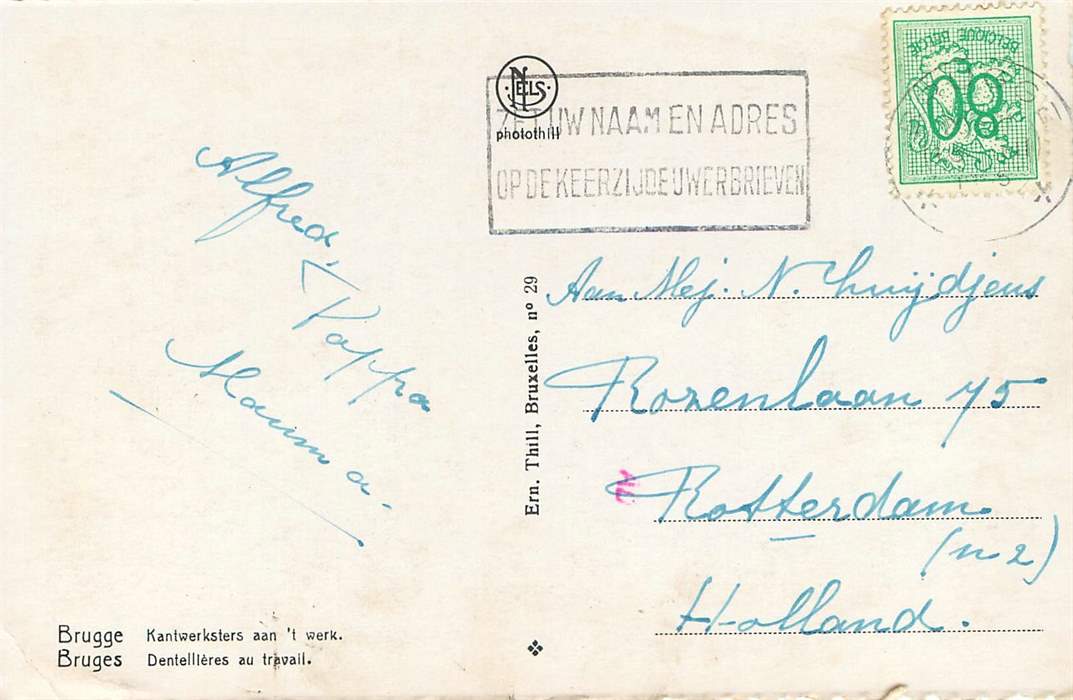 NELS
photothill
ZET UW NAAM EN ADRES
OP DE KEERZIJDE UWER BRIEVEN
BELGIQUE BELGIE
80
Alfred,
Pappa
Mamma.
Ern. Thill, Bruxelles, nº 29
Aan Mej. N.
Rozenlaan 75
Rotterdam
(n 2)
Holland.
Brugge Kantwerksters aan 't werk.
Bruges Dentellières au travail.